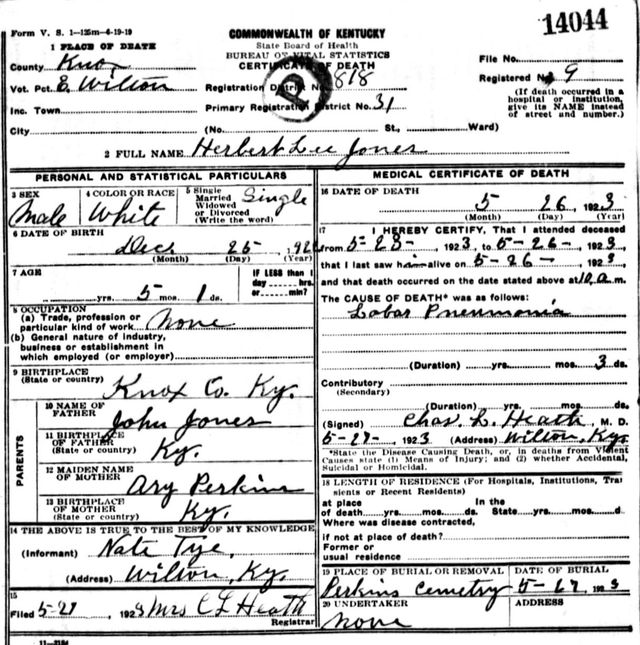 Form V. S. 1—125m—4-19-19
14044
COMMONWEALTH OF KENTUCKY
State Board of Health
BUREAU OF VITAL STATISTICS
CERTIFICATE OF DEATH
1 PLACE OF DEATH
County Knox
Vot. Pct. E. Wilton
Inc. Town
City (No. St., Ward)
Registration District No. 818
Primary Registration District No. 31
File No.
Registered No. 9
(If death occurred in a
hospital or institution,
give its NAME instead
of street and number.)
2 FULL NAME Herbert Lee Jones
PERSONAL AND STATISTICAL PARTICULARS
3 SEX
Male
4 COLOR OR RACE
White
5 Single
Married
Widowed
or Divorced
(Write the word)
Single
6 DATE OF BIRTH
Dec 25 192
(Month) (Day) (Year)
7 AGE
yrs. 5 mos. 1 ds.
IF LESS than 1
day hrs.
or min?
8 OCCUPATION
(a) Trade, profession or
particular kind of work None
(b) General nature of industry,
business or establishment in
which employed (or employer)
9 BIRTHPLACE
(State or country) Knox Co. Ky.
PARENTS
10 NAME OF
FATHER John Jones
11 BIRTHPLACE
OF FATHER
(State or country) Ky.
12 MAIDEN NAME
OF MOTHER Ary Perkins
13 BIRTHPLACE
OF MOTHER
(State or country) Ky.
14 THE ABOVE IS TRUE TO THE BEST OF MY KNOWLEDGE
(Informant) Nate Tye.
(Address) Wilton, Ky.
15
Filed 5-27 1923 Mrs C L Heath
Registrar
11—3184
MEDICAL CERTIFICATE OF DEATH
16 DATE OF DEATH
5 26, 1923
(Month) (Day) (Year)
17 I HEREBY CERTIFY, That I attended deceased
from 5-23-, 1923, to 5-26-, 1923,
that I last saw h alive on 5-26-, 1923,
and that death occurred on the date stated above at 10 a m.
The CAUSE OF DEATH* was as follows:
Lobar Pneumonia
(Duration) yrs. mos. 3 ds.
Contributory
(Secondary)
(Duration) yrs. mos. ds.
(Signed) Chas. L. Heath, M. D.
5-27-, 1923 (Address) Wilton, Ky.
*State the Disease Causing Death, or, in deaths from Violent
Causes state (1) Means of Injury; and (2) whether Accidental,
Suicidal or Homicidal.
18 LENGTH OF RESIDENCE (For Hospitals, Institutions, Tran
sients or Recent Residents)
at place In the
of death yrs. mos. ds. State yrs. mos. d
Where was disease contracted,
if not at place of death?
Former or
usual residence
19 PLACE OF BURIAL OR REMOVAL
Perkins Cemetry
DATE OF BURIAL
5-27, 1923
20 UNDERTAKER
None
ADDRESS